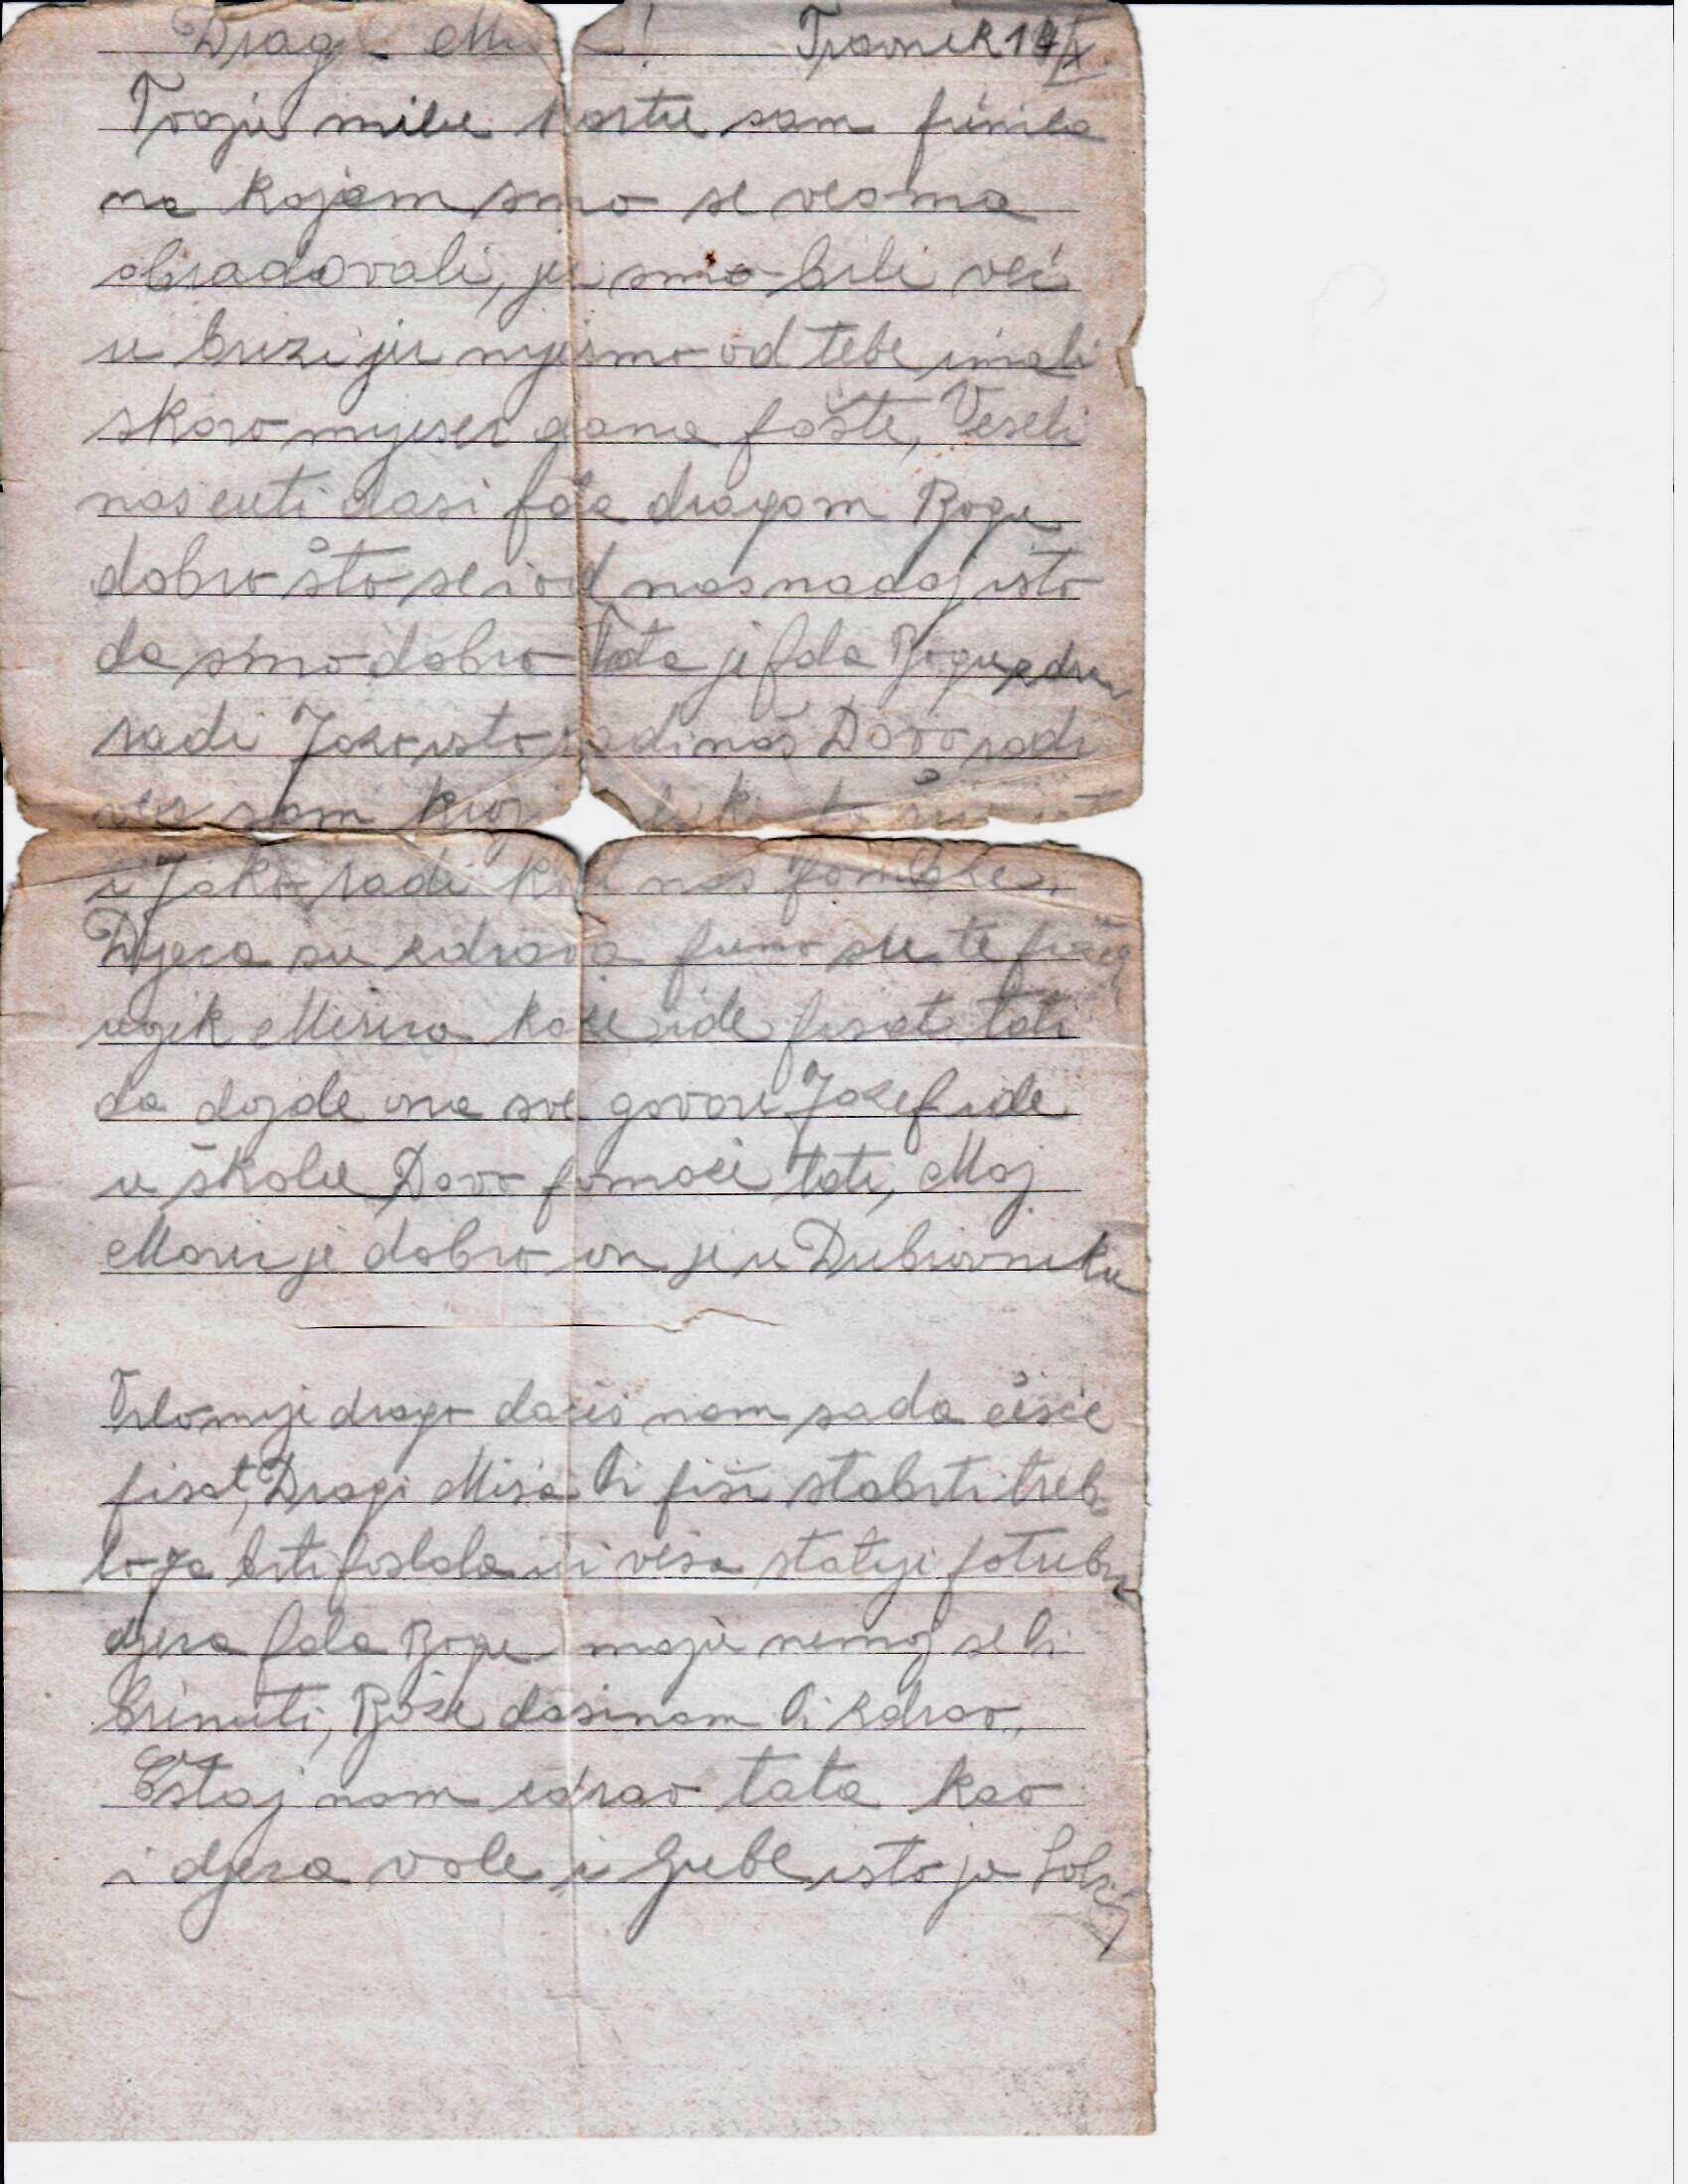 Dragi ! Travnik 14/X.
Tvoju milu kartu sam primila
na kojem smo se veoma
obradovali, jer smo bili već
u brizi jer nijesmo od tebe imali
skoro mjesec dana pošte, Veseli
nas cuti dasi fala dragom Bogu
dobro što se i od nas nadaj isto
da smo dobro Tata je fala Bogu zdrav
radi Jozo isto radi naš Davo radi
sam
i Jako radi nas pomaže.
Djeca su zdrava puno su te
uvjik Misira kaže ide pisat tati
da dojde ona sve govori Jozef ide
u školu Davo pomaže tati, Moj
Moric je dobro on je u Dubrovniku
Vrlo mije drago daćeš nam sada češće
pisat, Dragi Miša ti piši stabiti treba
loga biti poslala ili veša štatije potrebno
djeca fala Bogu maju nemoj se ti
brinuti, Bože dasinam ti zdrav,
Ostaj nam zdrav tata kao
i djeca vole i ljube isto ja